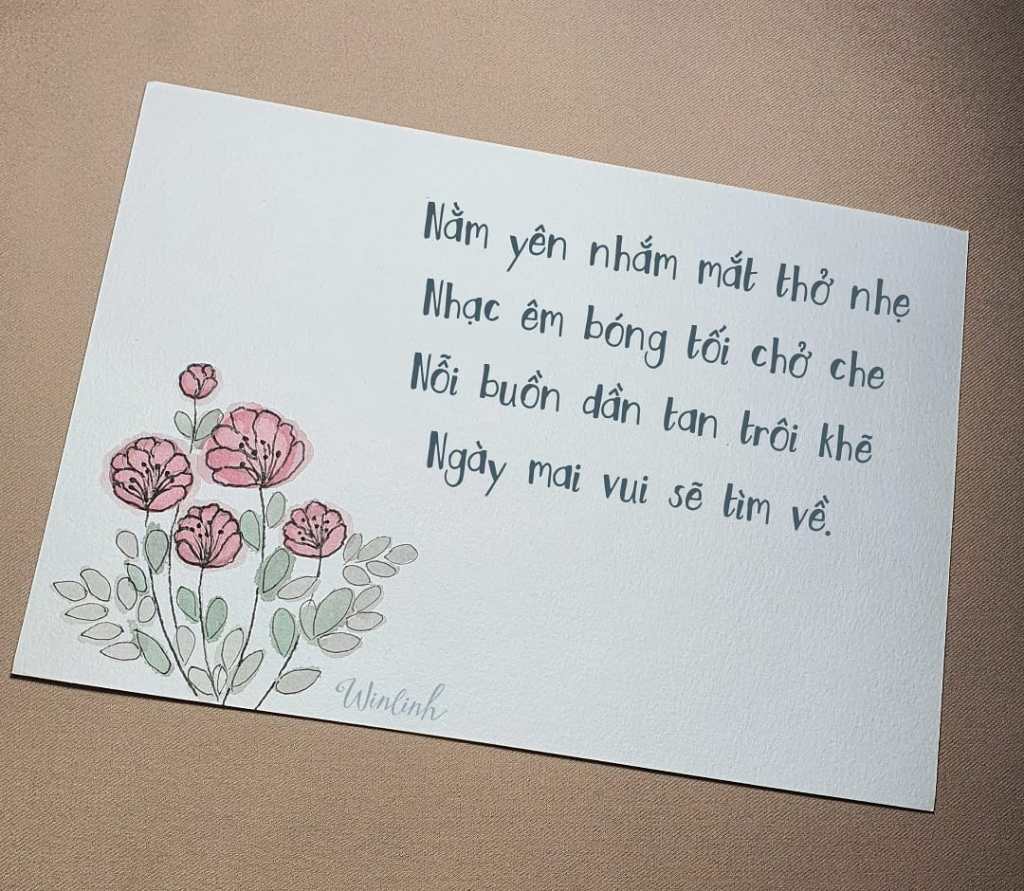 Nằm yên nhắm mắt thở nhẹ
Nhạc êm bóng tối chở che
Nỗi buồn dần tan trôi khẽ
Ngày mai vui sẽ tìm về.
Winlinh